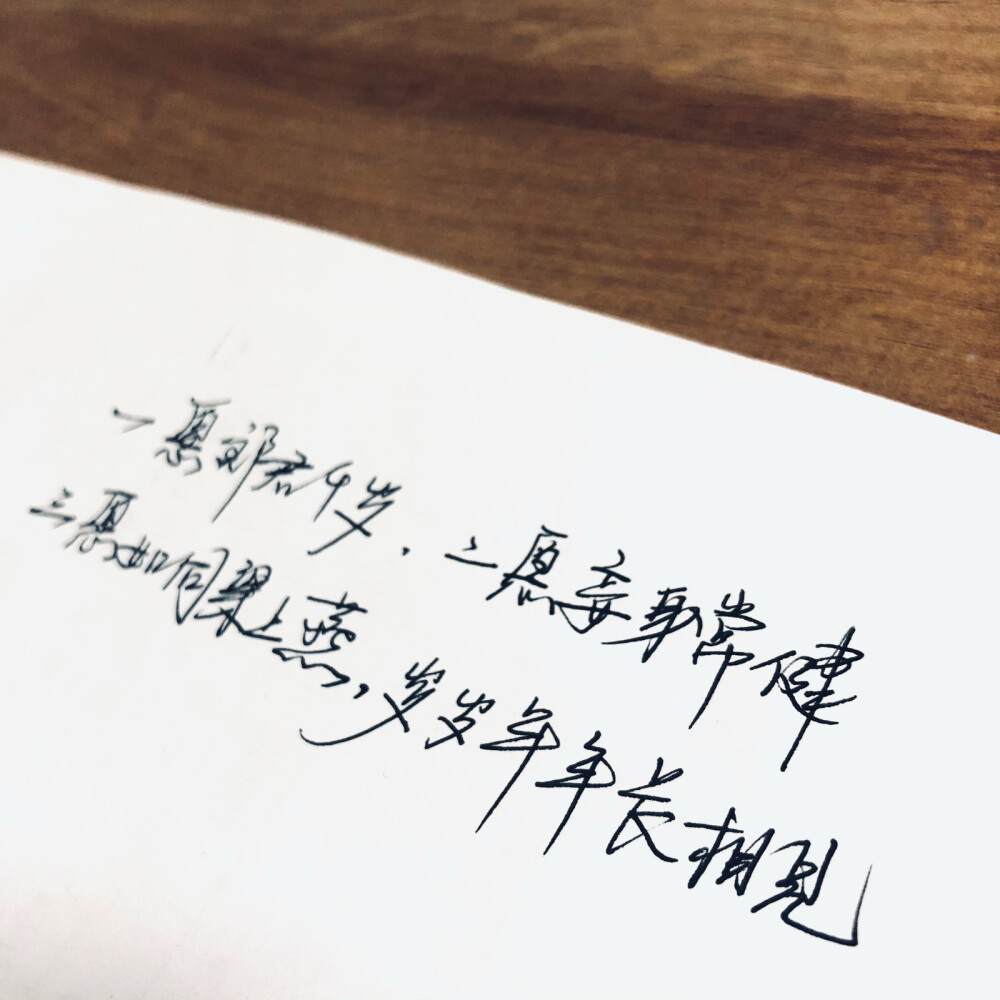 一愿郎君千岁，二愿妾身常健
三愿如同梁上燕，岁岁年年长相见